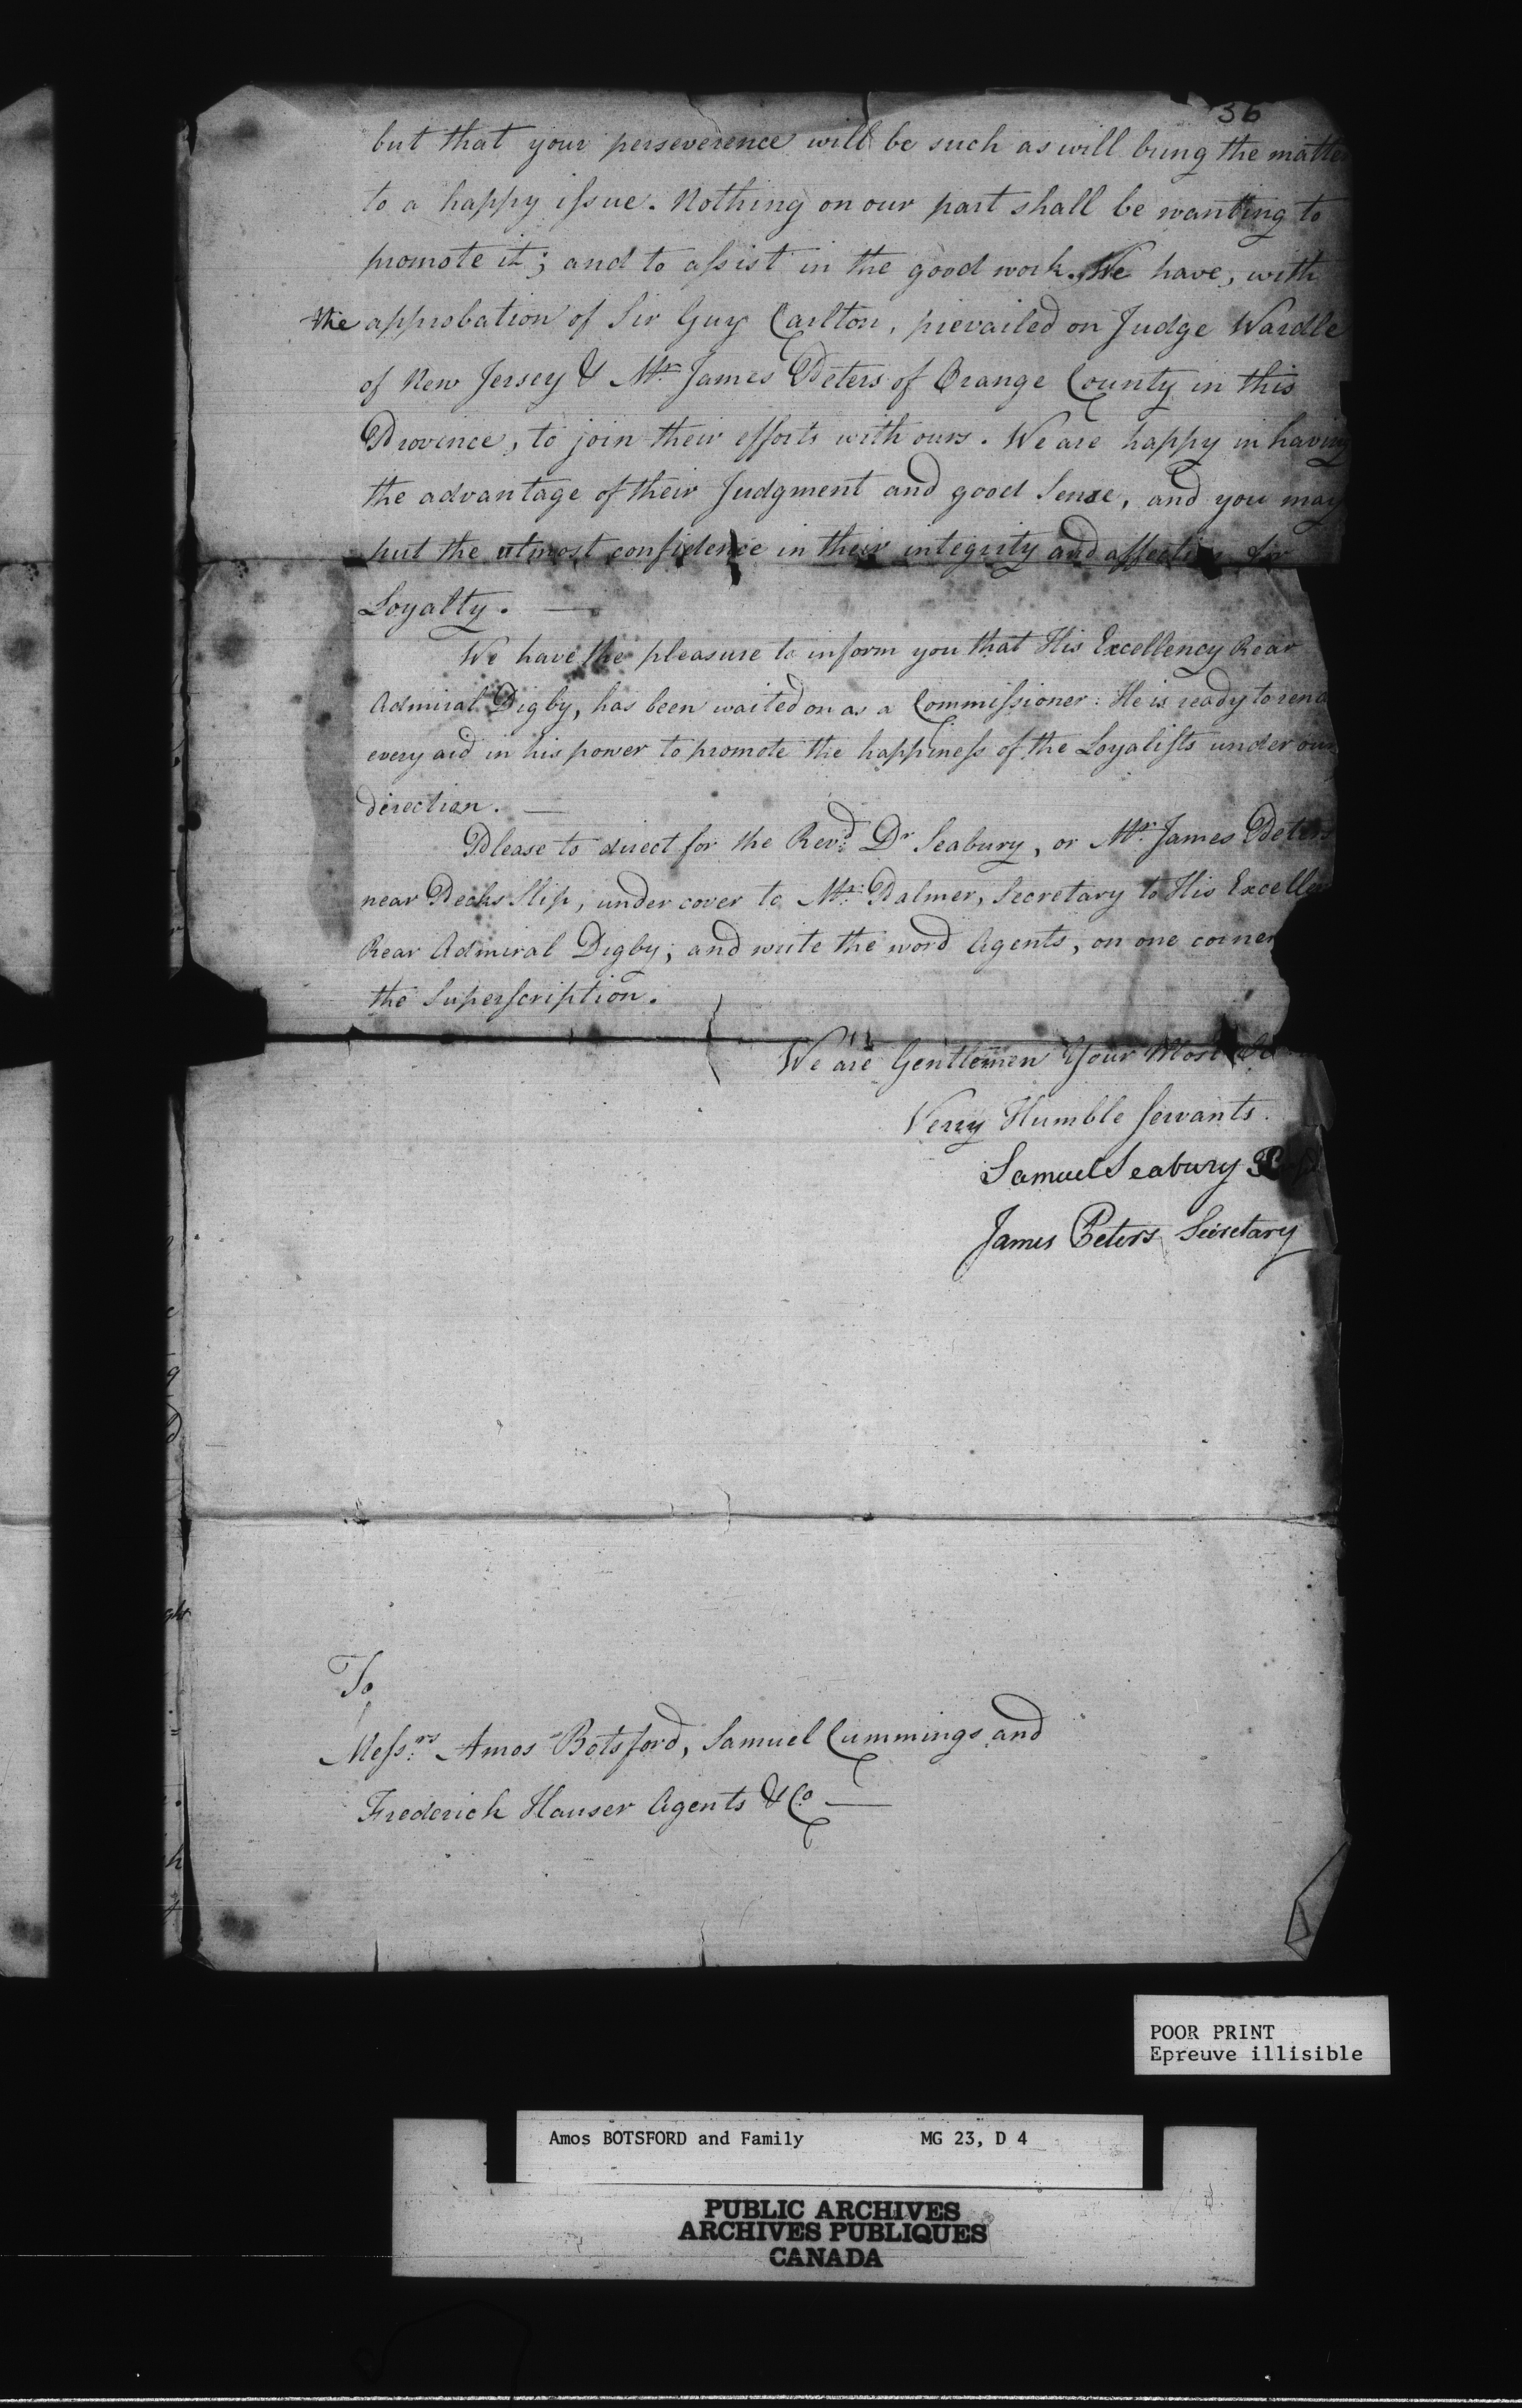 36
but that your perseverence will be such as will bring the matte
to a happy issue. Nothing on our part shall be wanting to
promote it; and to assist in the good work. We have, with
the approbation of Sir Guy Carlton, prevailed on Judge Wardle
of New Jersey & Mr. James Peters of Orange County in this
Province, to join their efforts with ours. We are happy in having
the advantage of their Judgment and good Sense, and you may
put the utmost confidence in their integrity and affection for
Loyalty. —
We have the pleasure to inform you that His Excellency Rear
Admiral Digby, has been waited on as a Commissioner: He is ready to rend
every aid in his power to promote the happiness of the Loyalists under our
direction. —
Please to direct for the Revd. Dr Seabury, or Mr. James Peters
near Pecks Slip, under cover to Mr. Palmer, Secretary to His Excelle
Rear Admiral Digby; and write the word Agents, on one corner
the Superscription.
We are Gentlemen Your Most
Verry Humble servants.
Samuel Seabury
James Peters Secretary
To
Messrs. Amos Botsford, Samuel Cummings and
Frederick Hauser Agents & Co —
POOR PRINT
Epreuve illisible
Amos BOTSFORD and Family MG 23, D 4
PUBLIC ARCHIVES
ARCHIVES PUBLIQUES
CANADA